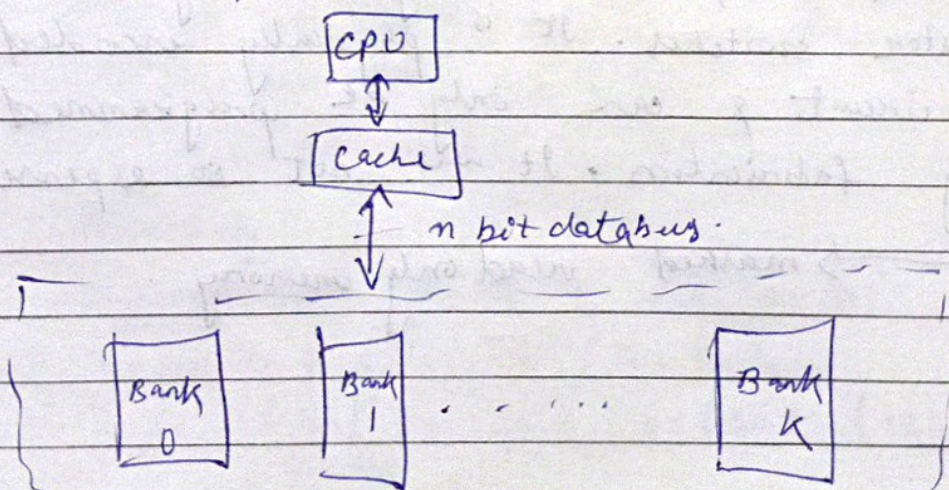 CPU
Cache
n bit databus.
Bank 0
Bank 1
. . . . . .
Bank K